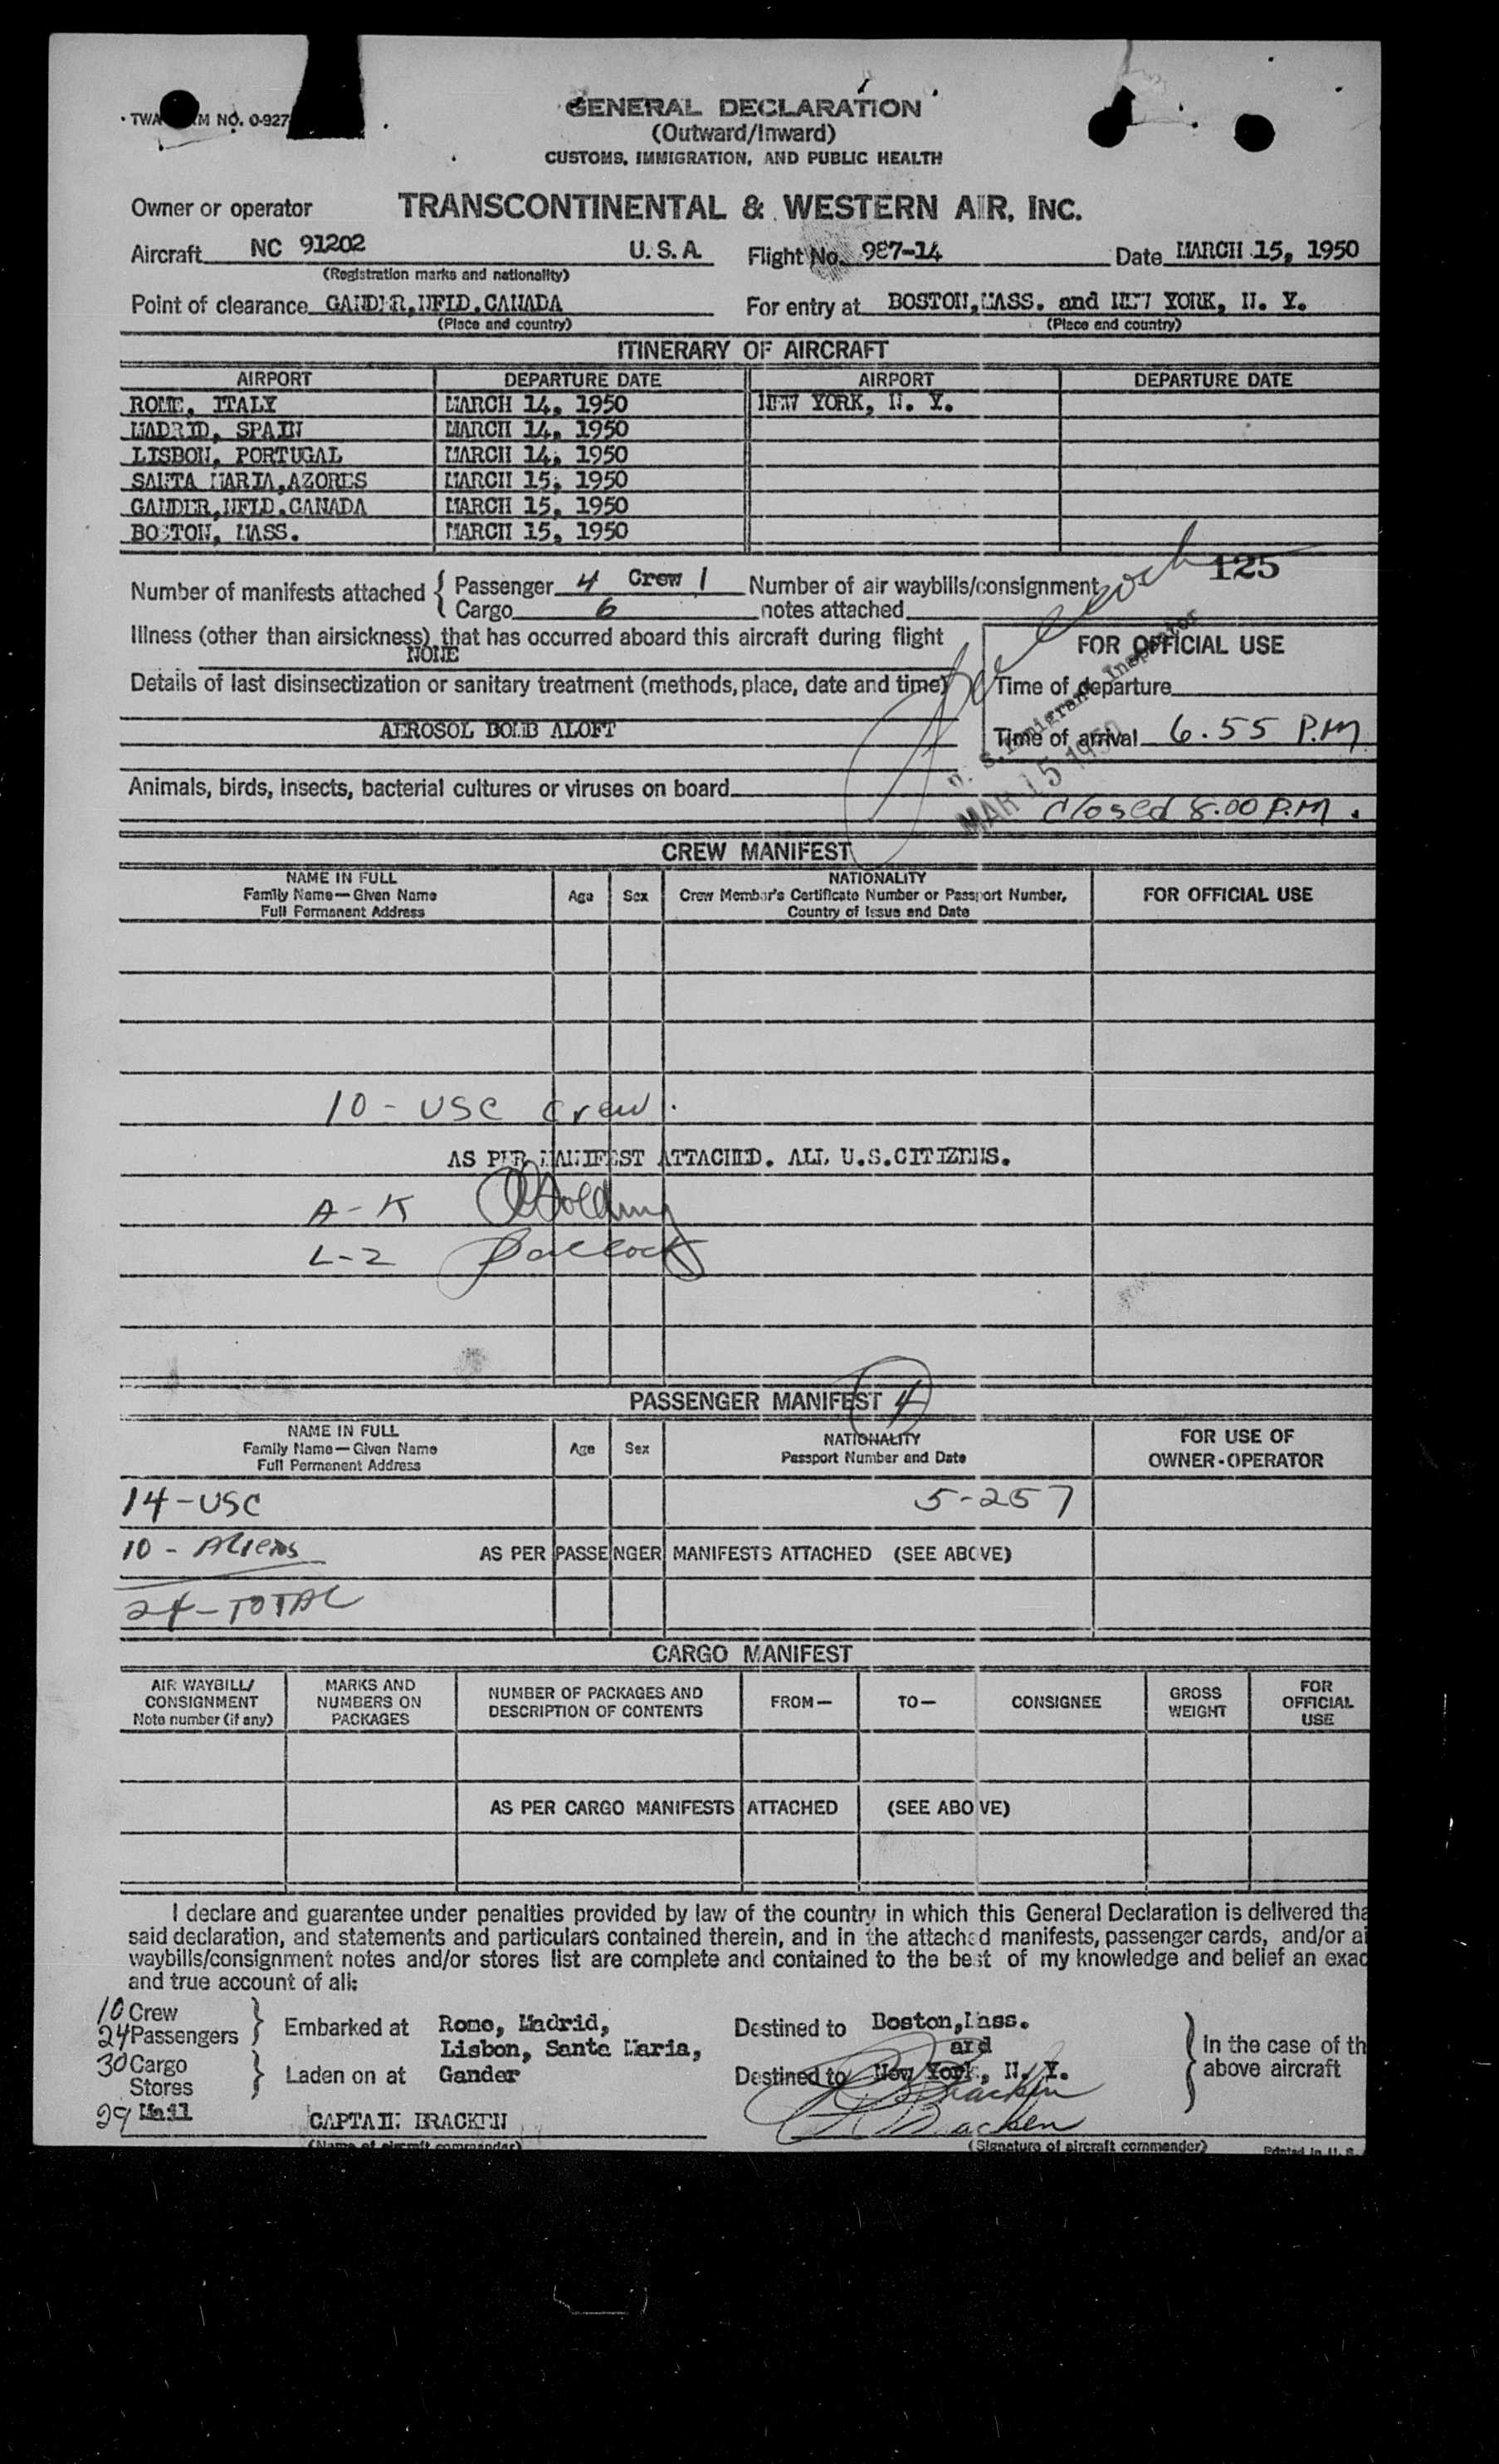 GENERAL DECLARATION
(Outward/Inward)
CUSTOMS, IMMIGRATION, AND PUBLIC HEALTH
TWA M NO. 0-927
Owner or operator TRANSCONTINENTAL & WESTERN AIR, INC.
Aircraft NC 91202 U.S.A. Flight No. 987-14 Date MARCH 15, 1950
(Registration marks and nationality)
Point of clearance GANDER,NFLD.CANADA For entry at BOSTON,MASS. and NEW YORK, N. Y.
(Place and country) (Place and country)
ITINERARY OF AIRCRAFT
AIRPORT DEPARTURE DATE AIRPORT DEPARTURE DATE
ROME, ITALY MARCH 14, 1950 NEW YORK, N. Y.
MADRID, SPAIN MARCH 14, 1950
LISBON, PORTUGAL MARCH 14, 1950
SANTA MARIA,AZORES MARCH 15, 1950
GANDER,NFLD.CANADA MARCH 15, 1950
BOSTON, MASS. MARCH 15, 1950
125
Number of manifests attached { Passenger 4 Crew 1 Number of air waybills/consignment
Cargo 6 notes attached
Illness (other than airsickness) that has occurred aboard this aircraft during flight
NONE
FOR OFFICIAL USE
Details of last disinsectization or sanitary treatment (methods, place, date and time) Time of departure
AEROSOL BOMB ALOFT
Time of arrival 6.55 P.M
U. S. Immigrant Inspector
MAR 15 1950
Animals, birds, insects, bacterial cultures or viruses on board
Closed 8.00 P.M.
CREW MANIFEST
NAME IN FULL
Family Name—Given Name
Full Permanent Address
Age Sex
NATIONALITY
Crew Member's Certificate Number or Passport Number,
Country of Issue and Date
FOR OFFICIAL USE
10 - USC crew.
AS PER MANIFEST ATTACHED. ALL U.S.CITIZENS.
A - K
L - Z
PASSENGER MANIFEST 4
NAME IN FULL
Family Name—Given Name
Full Permanent Address
Age Sex
NATIONALITY
Passport Number and Date
FOR USE OF
OWNER-OPERATOR
14 - USC 5-257
10 - Aliens AS PER PASSENGER MANIFESTS ATTACHED (SEE ABOVE)
24 - TOTAL
CARGO MANIFEST
AIR WAYBILL/
CONSIGNMENT
Note number (if any)
MARKS AND
NUMBERS ON
PACKAGES
NUMBER OF PACKAGES AND
DESCRIPTION OF CONTENTS
FROM—
TO—
CONSIGNEE
GROSS
WEIGHT
FOR
OFFICIAL
USE
AS PER CARGO MANIFESTS ATTACHED (SEE ABOVE)
I declare and guarantee under penalties provided by law of the country in which this General Declaration is delivered tha
said declaration, and statements and particulars contained therein, and in the attached manifests, passenger cards, and/or ai
waybills/consignment notes and/or stores list are complete and contained to the best of my knowledge and belief an exac
and true account of all:
10 Crew
24 Passengers } Embarked at Rome, Madrid, Destined to Boston,Mass.
Lisbon, Santa Maria, and
30 Cargo
Stores } Laden on at Gander Destined to New York, N. Y.
} In the case of th
above aircraft
29 Mail
CAPTAIN BRACKEN
Bracken
Bracken
(Name of aircraft commander) (Signature of aircraft commander) Printed in U. S.